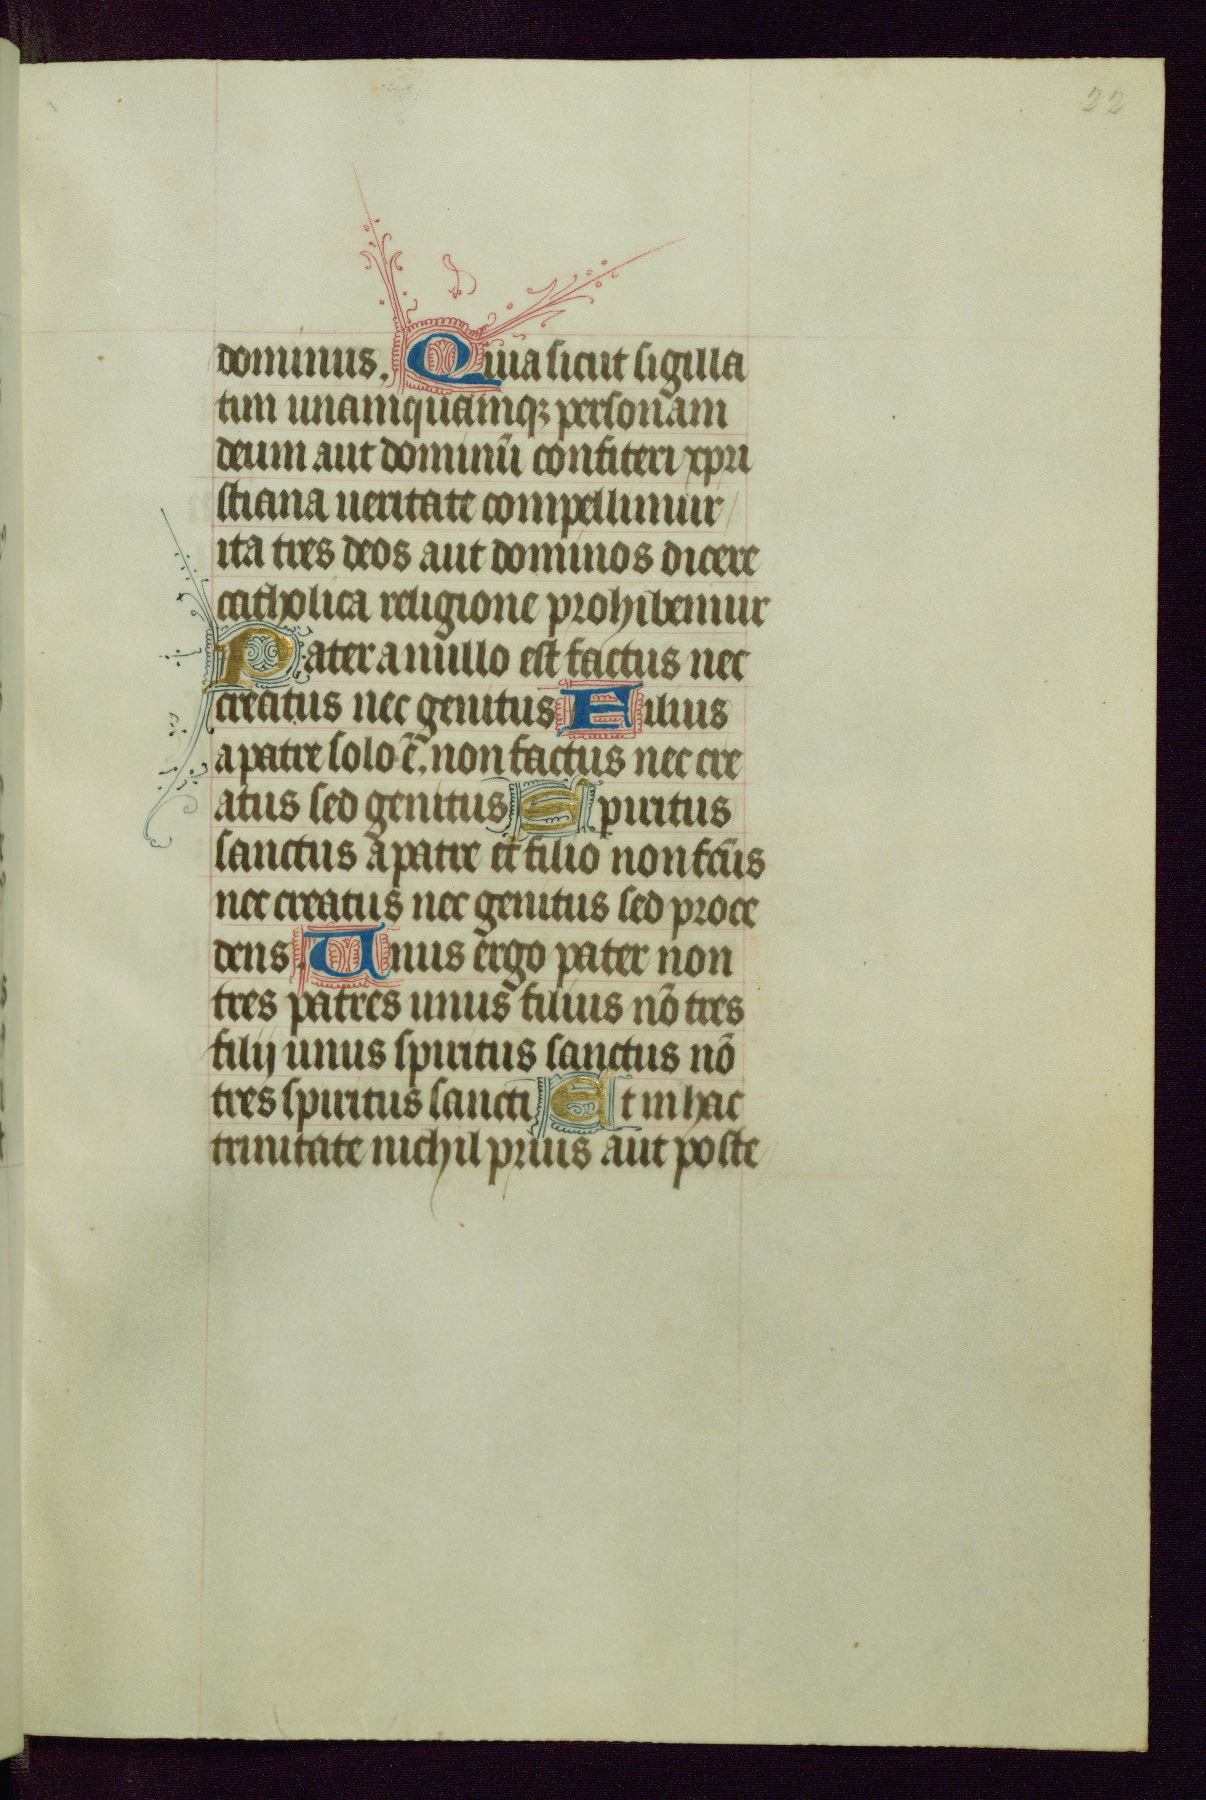 22
dominus. Quia sicut sigilla
tim unamquamqꝫ personam
deum aut dominū confiteri xpri
stiana ueritate compellimur
ita tres deos aut dominos dicere
catholica religione prohibemur
Pater a nullo est factus nec
creatus nec genitus Filius
a patre solo ē. non factus nec cre
atus sed genitus Spiritus
sanctus a patre et filio non fc̄us
nec creatus nec genitus sed proce
dens. Unus ergo pater non
tres patres unus filius nō tres
filij unus spiritus sanctus nō
tres spiritus sancti Et in hac
trinitate nichil prius aut poste